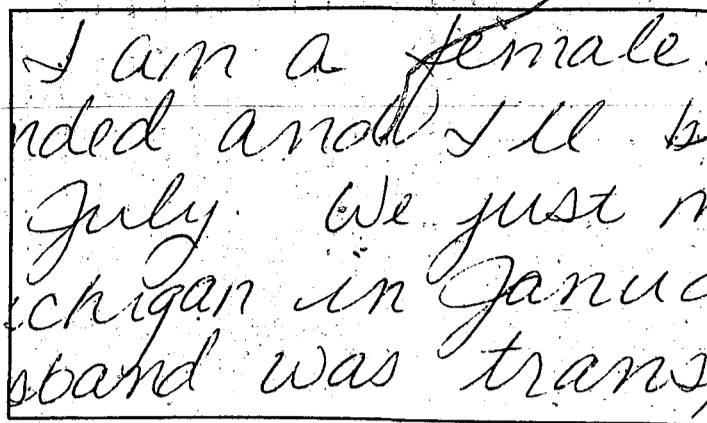 I am a female.
nded and I'll b
July. We just m
ichigan in Janua
sband was trans